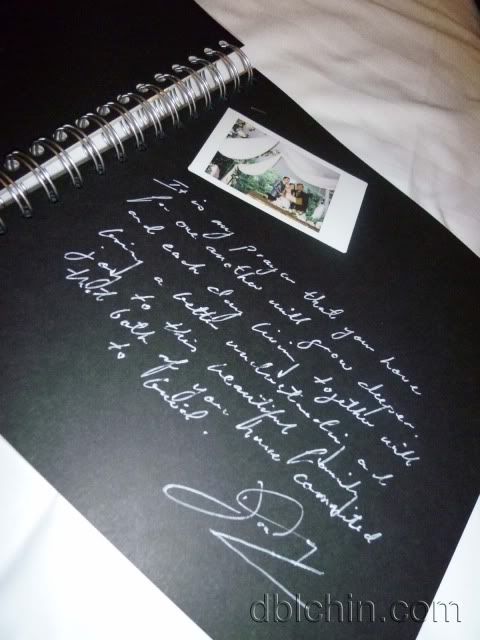 It is my prayer that your love
for one another will grow deeper.
and each day living together will
bring a better understanding and
joy to this beautiful family
that both of you have committed
to build.
dblchin.com